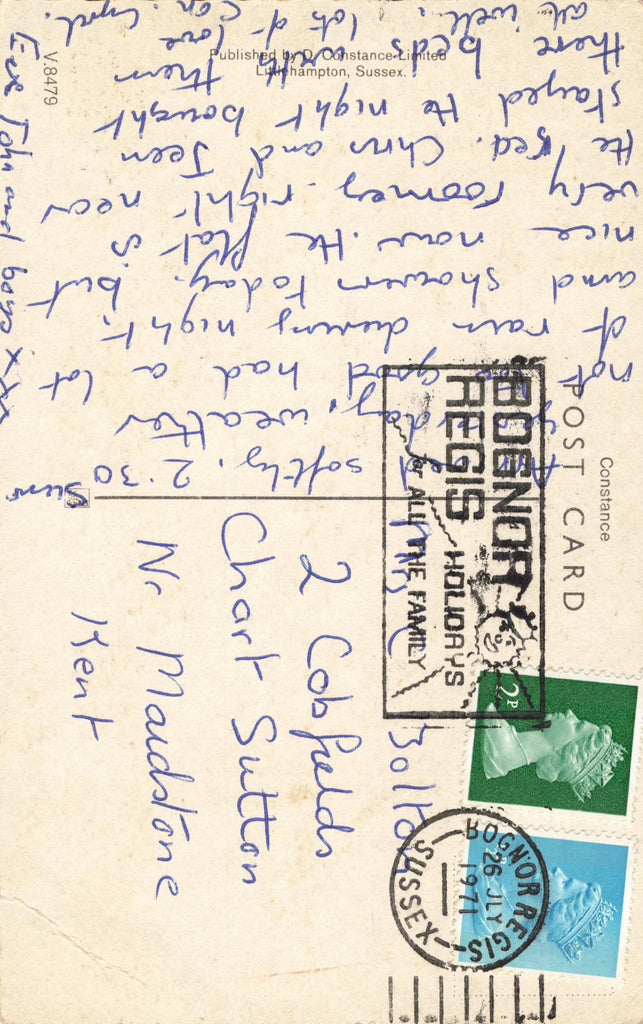 POST CARD
Constance
Published by D. Constance Limited
Littlehampton, Sussex.
V.8479
Arrived safely. 2.30 Sun
yesterday, weather
not good, had a lot
of rain during night,
and showers today. but
nice now. The flat is
very roomey. right near
the sea. Chris and Jean
stayed the night bought
there beds with them
all well. lots of love
Con. Cyril.
Eve John and boys xxx
Mrs C
2 Cobfields
Chart Sutton
Nr Maidstone
Kent
BOGNOR
REGIS HOLIDAYS
for ALL THE FAMILY
2P
BOGNOR REGIS
26 JLY
1971
SUSSEX